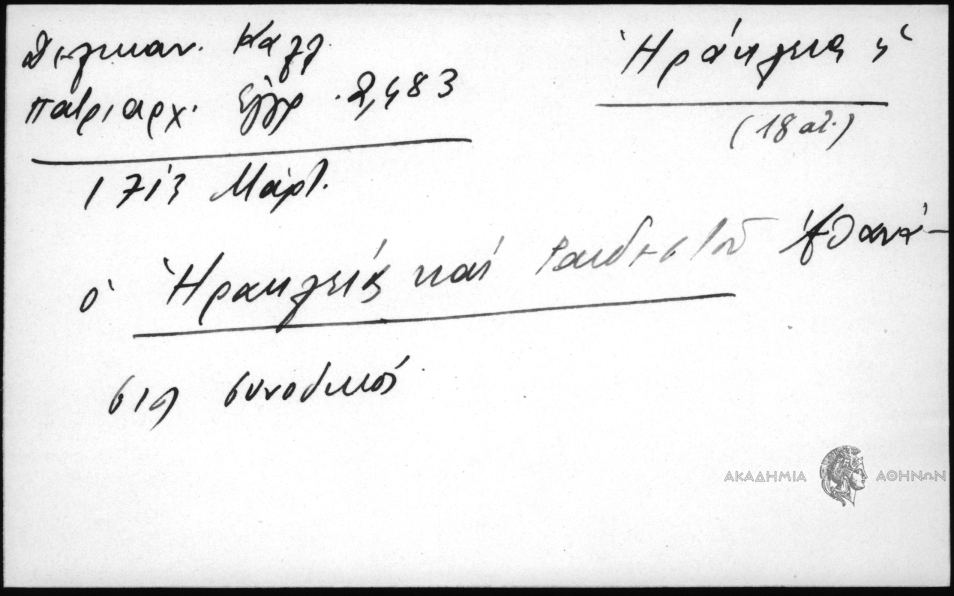 Δελικαν. Καλλ.
Πατριαρχ. Εγγρ. 2,483
Ἡράκλεια ἡ
(18 αἰ.)
1713 Μάρτ.
ὁ Ἡρακλείας καί Ραιδεστοῦ Ἀθανά-
σιος συνοδικός
ΑΚΑΔΗΜΙΑ ΑΘΗΝΩΝ